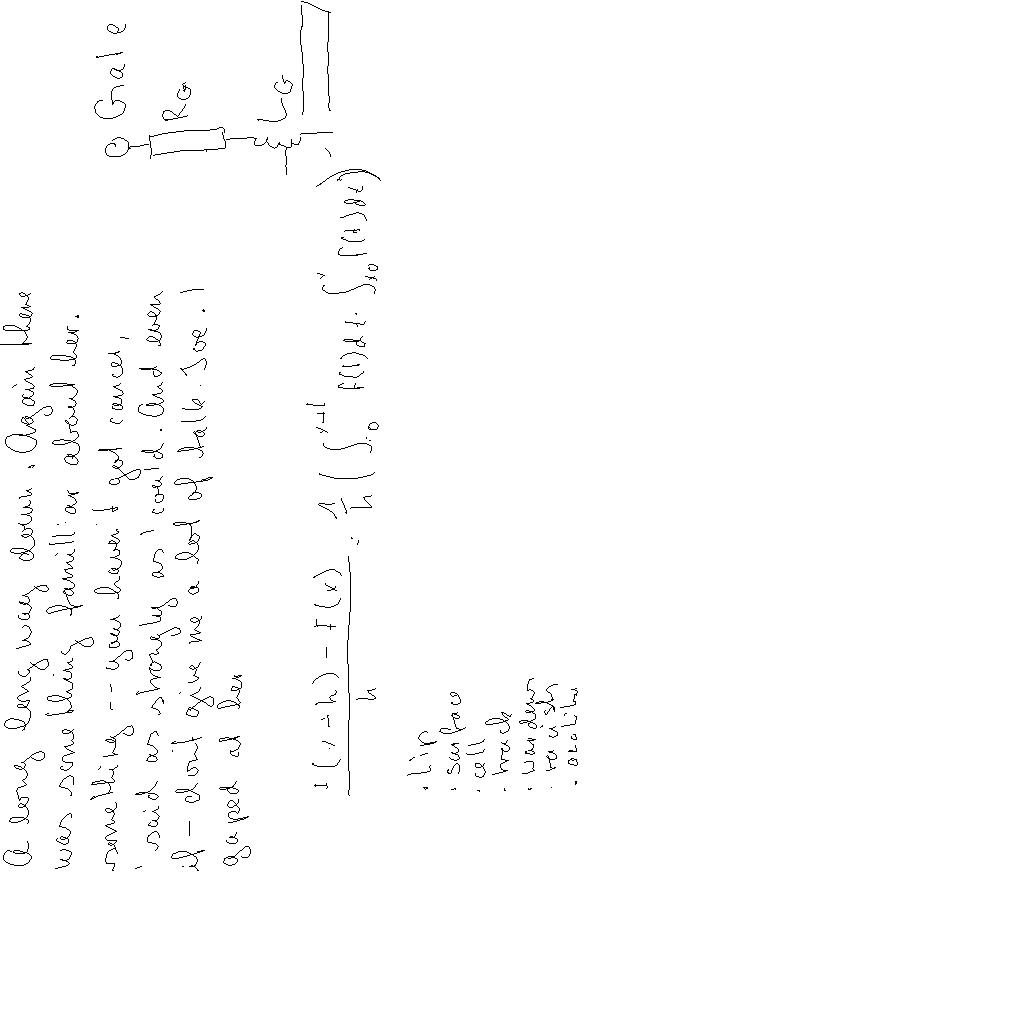 A long long way down. Again there
was something familiar about her.
something -- you haven't got cancer,
I said as strongly as I could. And even
if - don't give me a lot of talk. Joe. I
gaped at her
Gate
R_G
L_G
F(x+h) - F(x)
h
1
h
( ∫ f(t)dt - ∫ f(t)dt )
. Lip
. surface
. call
. track
. wardens